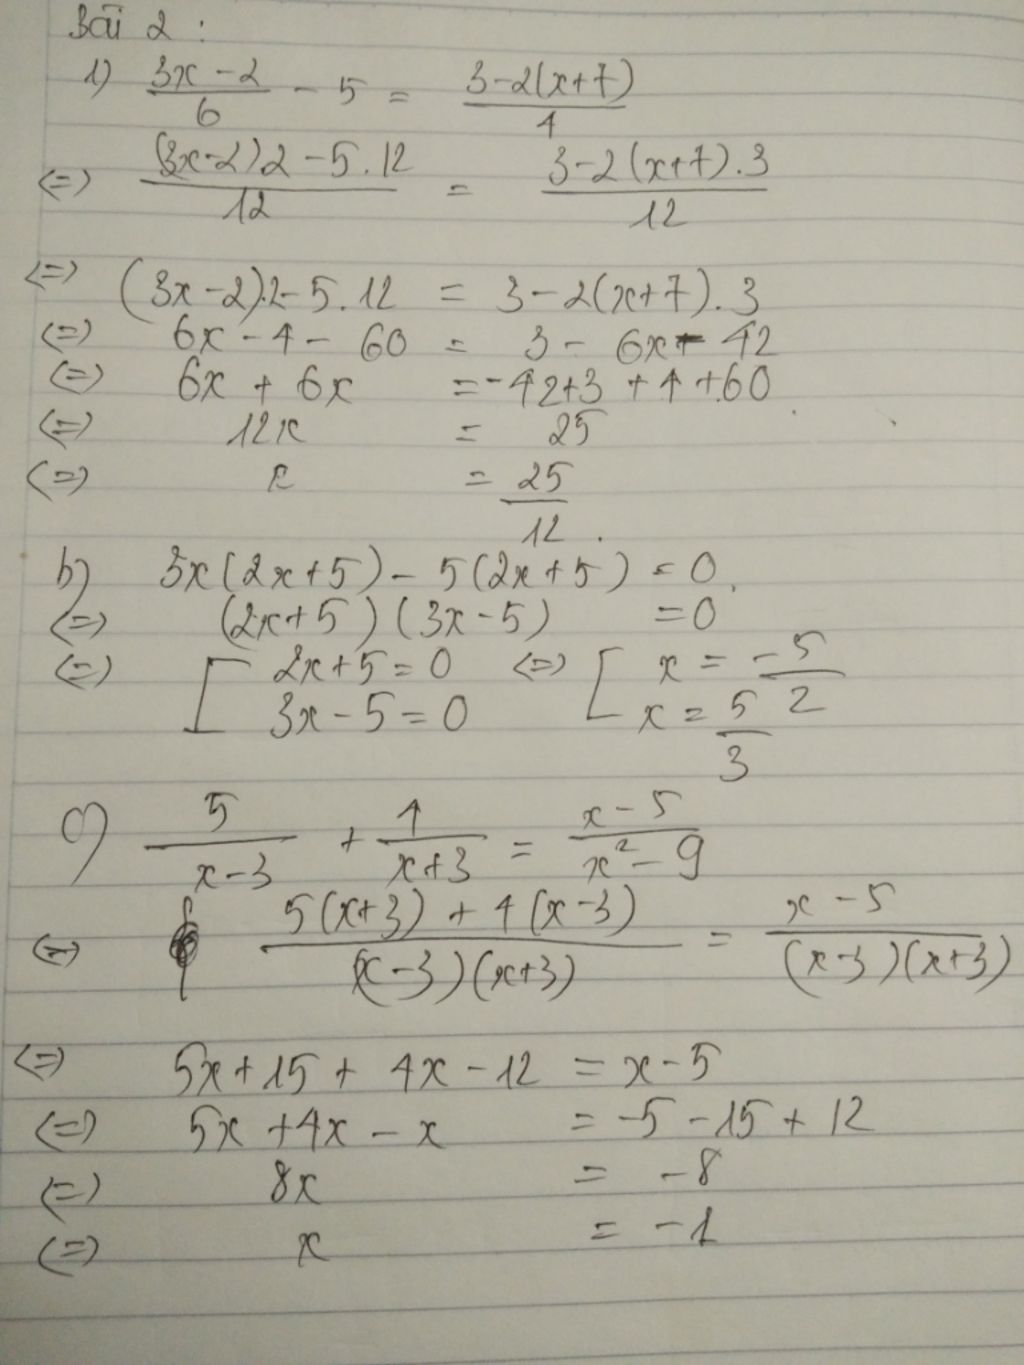 Bài 2 :
1) (3x - 2)/6 - 5 = (3 - 2(x+7))/4
<=> ((3x-2)2 - 5.12)/12 = (3 - 2(x+7).3)/12
<=> (3x - 2).2 - 5.12 = 3 - 2(x+7).3
<=> 6x - 4 - 60 = 3 - 6x - 42
<=> 6x + 6x = -42+3 + 4 + 60
<=> 12x = 25
<=> x = 25/12.
b) 3x(2x+5) - 5(2x+5) = 0.
<=> (2x+5)(3x-5) = 0
<=> [ 2x+5 = 0 <=> [ x = -5/2
3x - 5 = 0 x = 5/3
c) 5/(x-3) + 4/(x+3) = (x-5)/(x²-9)
<=> (5(x+3) + 4(x-3))/((x-3)(x+3)) = (x-5)/((x-3)(x+3))
<=> 5x+15 + 4x - 12 = x - 5
<=> 5x + 4x - x = -5 - 15 + 12
<=> 8x = -8
<=> x = -1